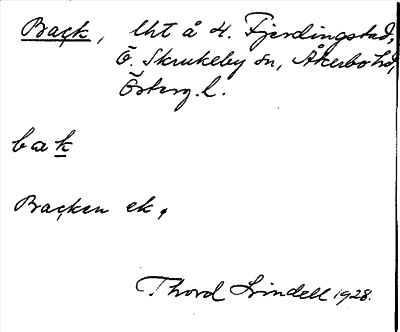 Back, lht å N. Fjerdingstad,
Ö. Skrukeby sn, Åkerbo hd,
Österg. l.
bak
Backen ek.
Thord Lindell 1928.